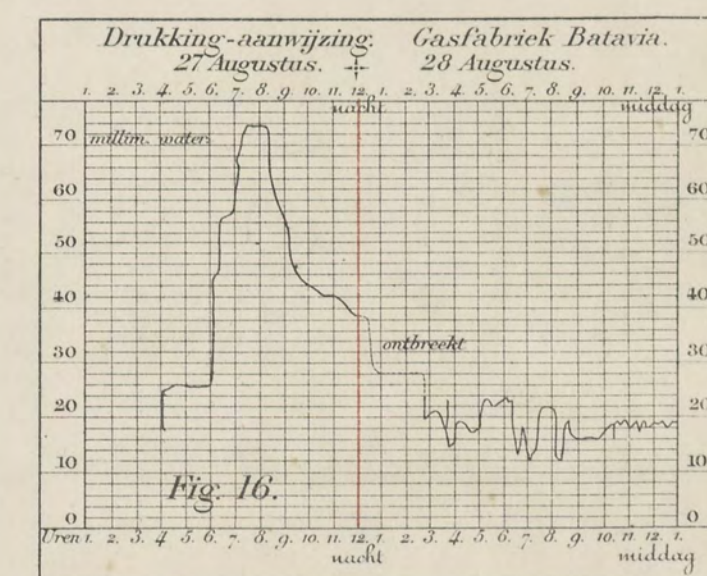 Drukking-aanwijzing. Gasfabriek Batavia.
27 Augustus. 28 Augustus.
1. 2. 3. 4. 5. 6. 7. 8. 9. 10. 11. 12. 1. 2. 3. 4. 5. 6. 7. 8. 9. 10. 11. 12. 1.
nacht middag
millim. water.
70 70
60 60
50 50
40 40
ontbreekt
30 30
20 20
10 10
Fig. 16.
0 0
Uren 1. 2. 3. 4. 5. 6. 7. 8. 9. 10. 11. 12. 1. 2. 3. 4. 5. 6. 7. 8. 9. 10. 11. 12. 1.
nacht middag